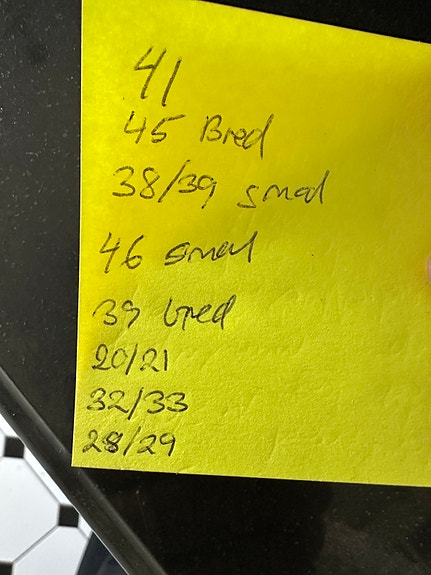 41
45 Bred
38/39 smal
46 smal
39 bred
20/21
32/33
28/29